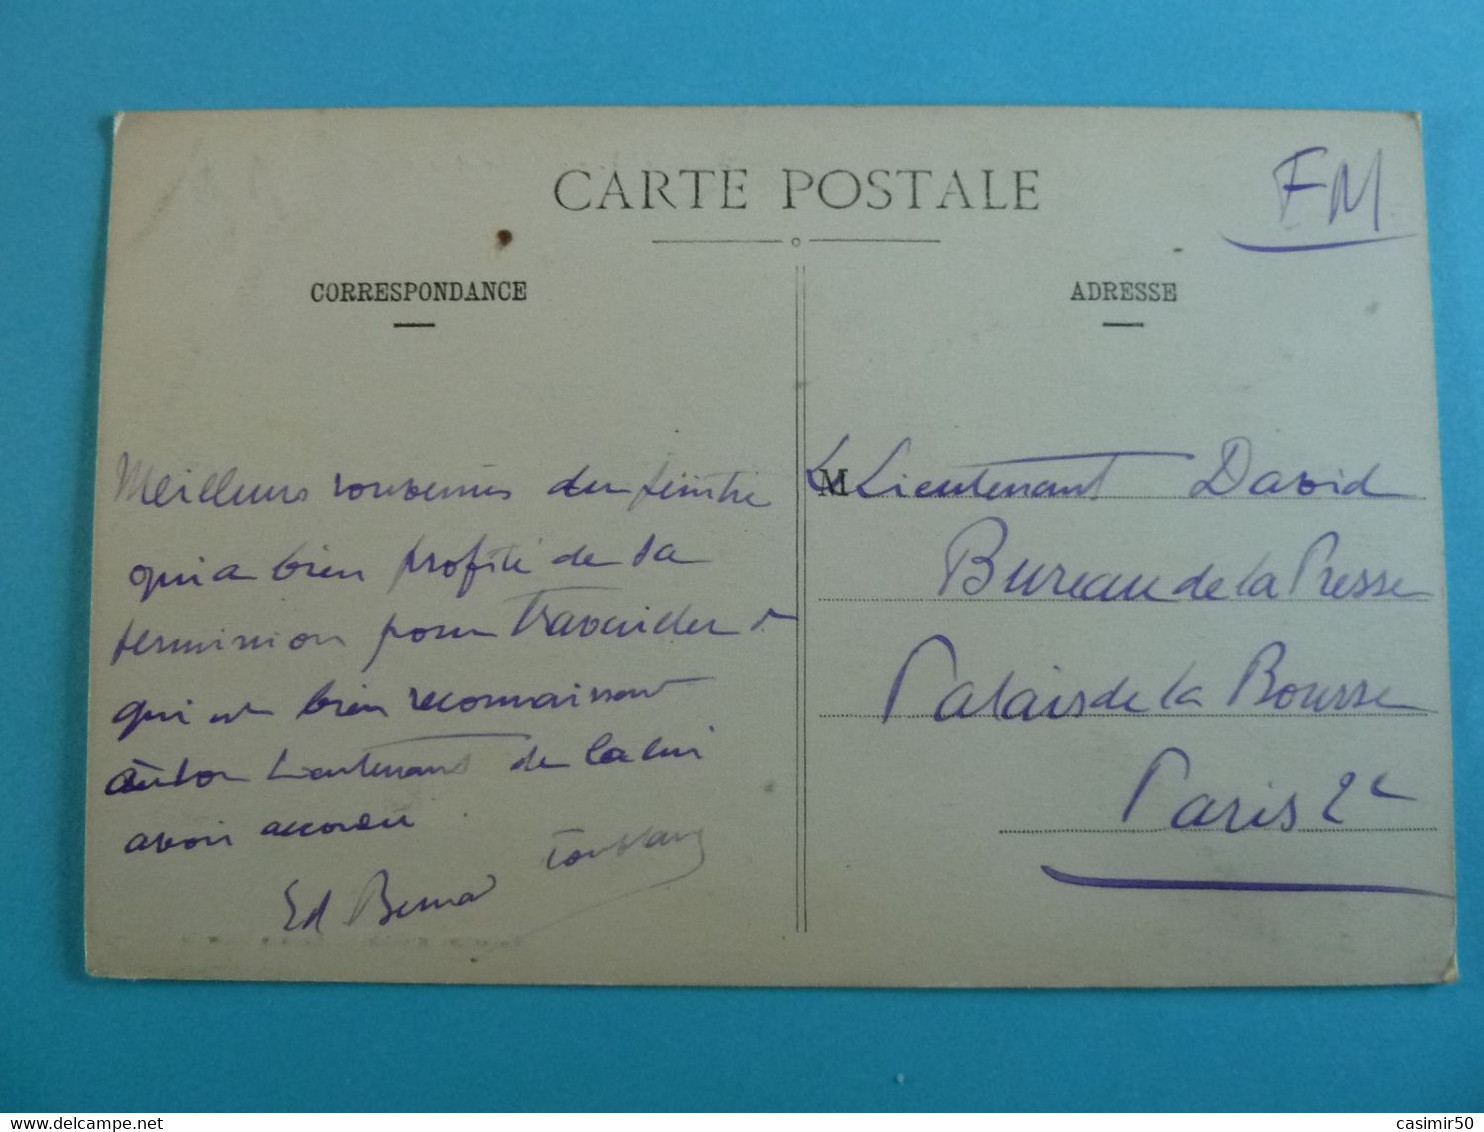 CARTE POSTALE
FM
CORRESPONDANCE
ADRESSE
Meilleurs souvenirs du peintre
qui a bien profité de sa
permission pour travailler &
qui est bien reconnaissant
au bon Lieutenant de la lui
avoir accordée
Ed Bernard Toublanc
M Lieutenant David
Bureau de la Presse
Palais de la Bourse
Paris 2e
delcampe.net
casimir50